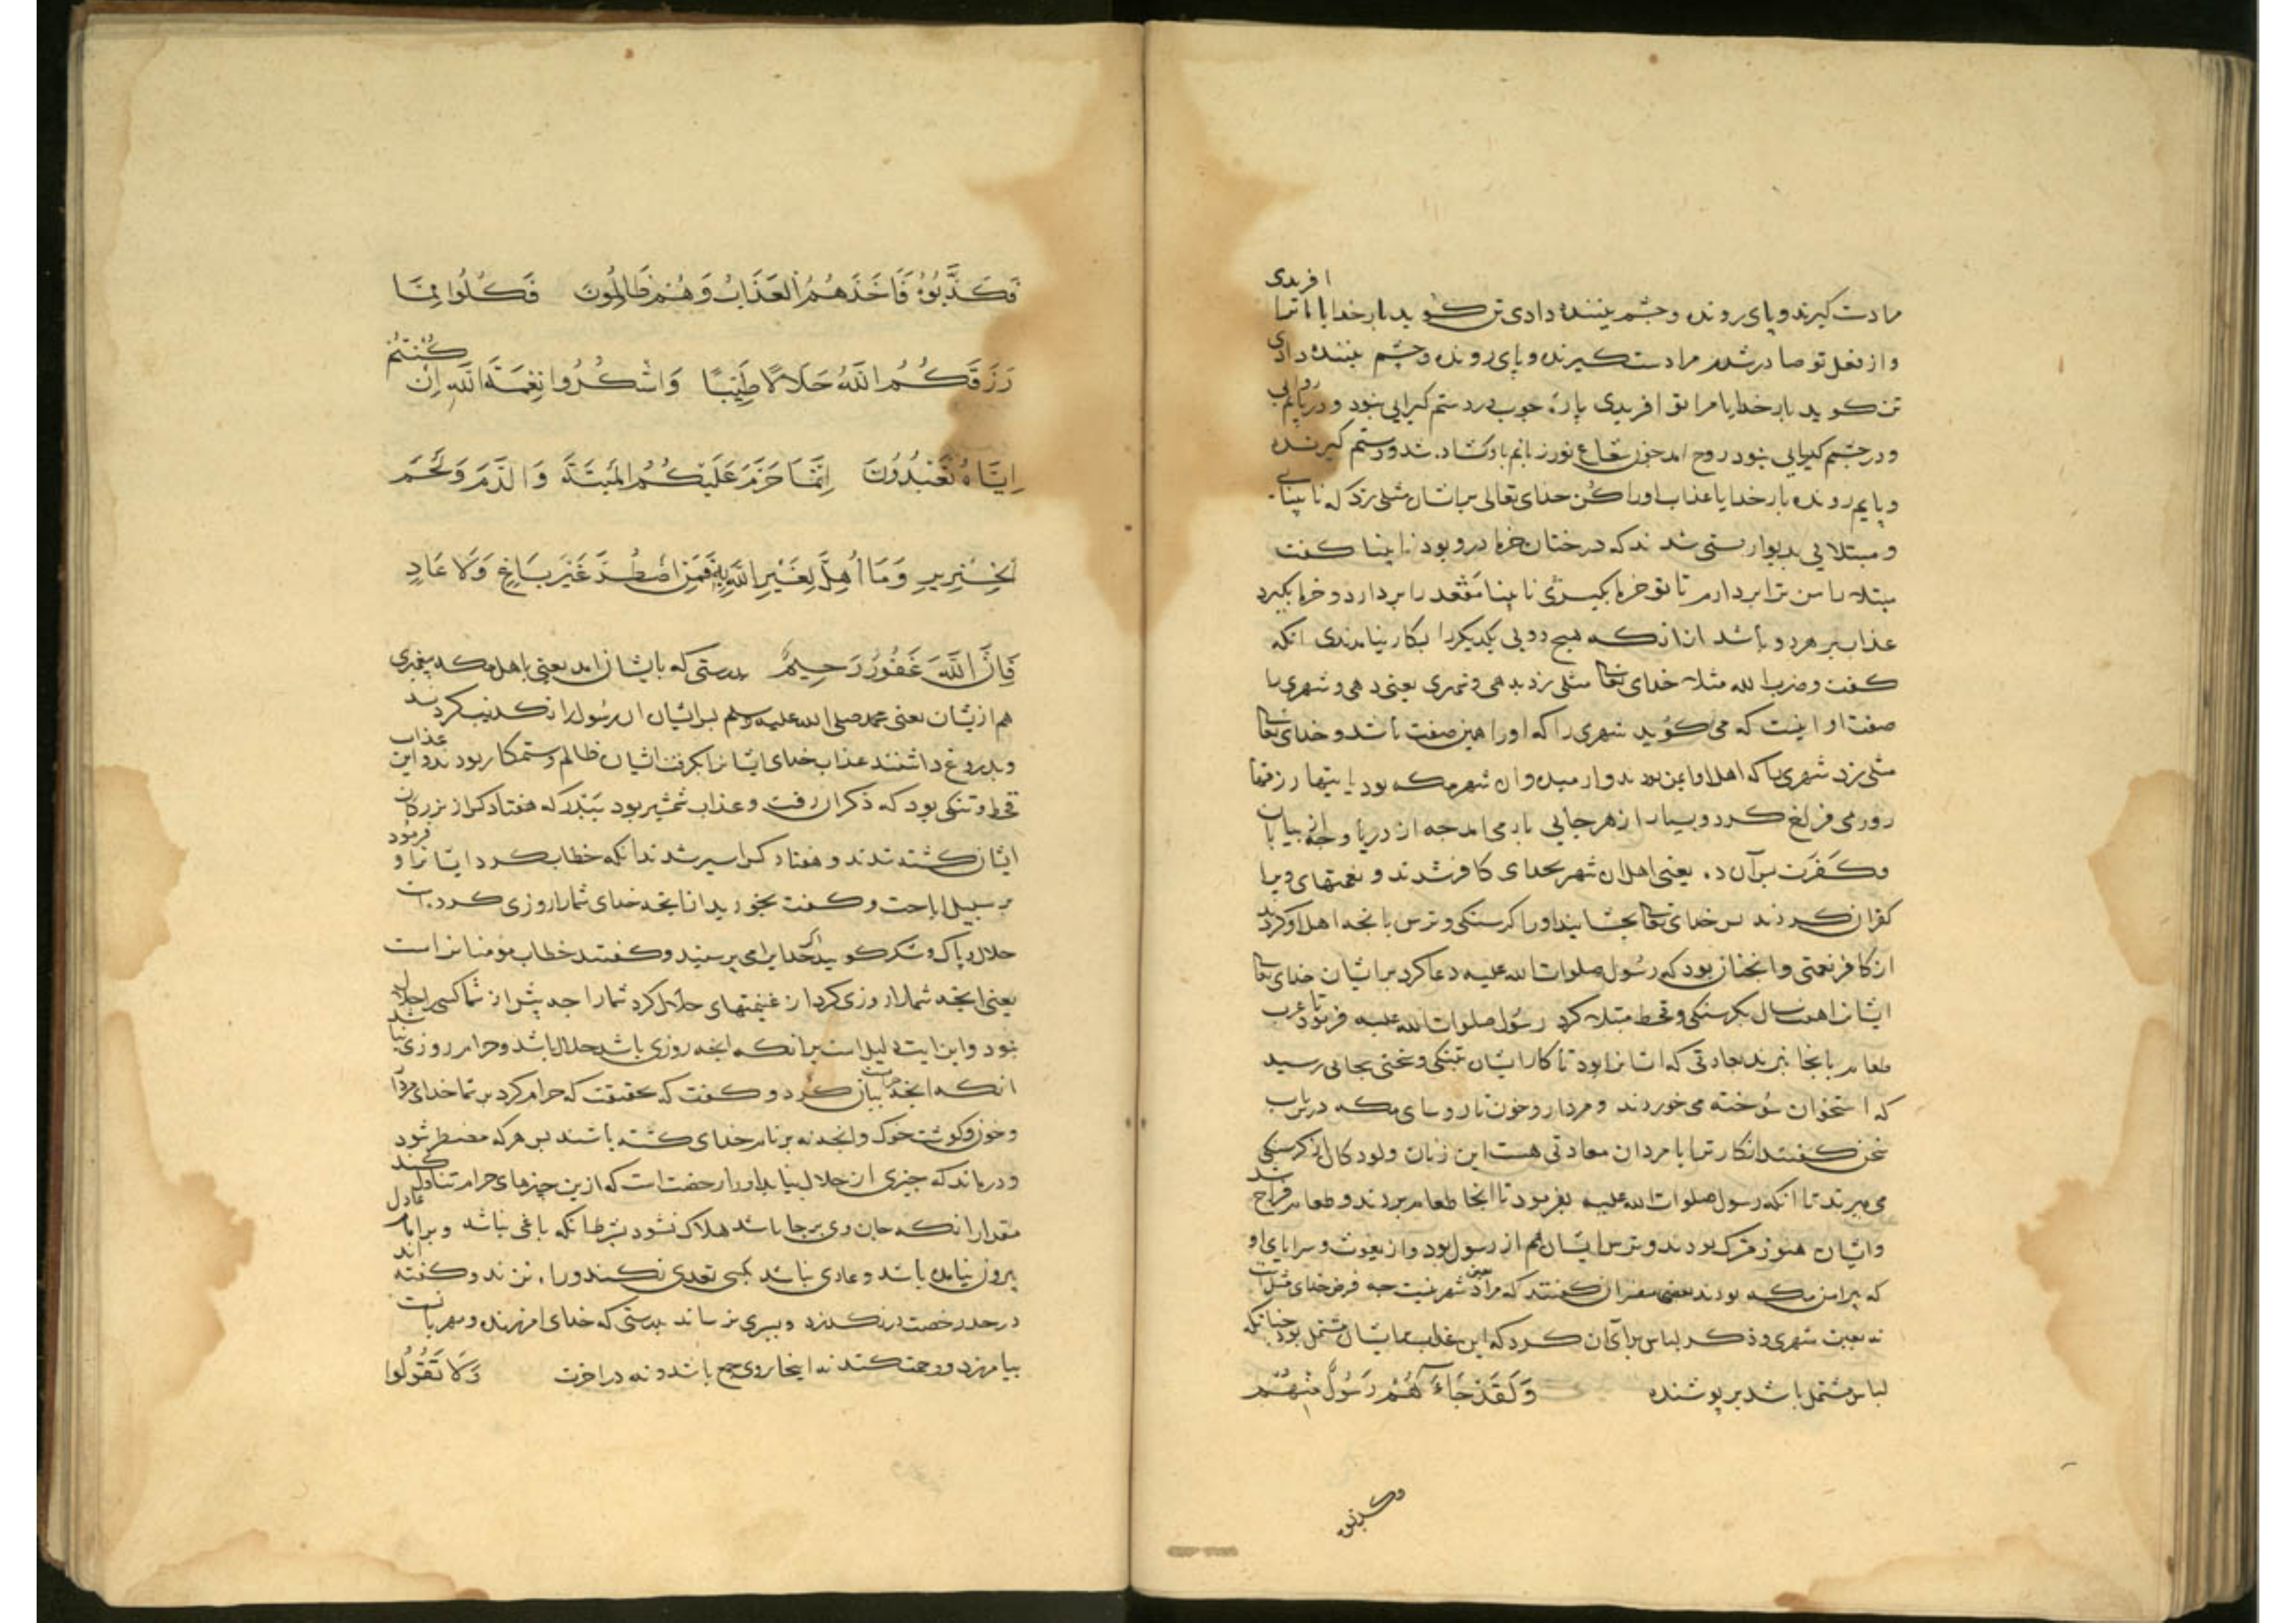 افریدی
مرا دست کیرنده و پای رونده و چشم بیننده دادی تن کوید بار خدایا ما را تو
و از فعل تو صادر شدم مرا دست کیرنده و پای رونده و چشم بیننده دادی
تن کوید بار خدایا مرا تو افریدی پارهٔ چوب در دستم کیرایی نبود و در پایم روایی
و در چشم کیرایی نبود روح امد چون شعاع نور زبانم باو کشاده شد و دستم کیرنده
و پایم رونده بار خدایا عذاب او را کن خدای تعالی بر ایشان مثلی زد که نابینایی
و مبتلایی بدیوار بستی شدند که درختان خرما درو بود نابینا کفت
مبتلا را من ترا بردارم تا تو خرما بکیری نابینا مقعد را بردارد و خرما بکیرد
عذاب بر هر دو باشد از انکه هیچ دو بی یکدیکر را بکار نیامدندی انکه
کفت و ضرب الله مثلا خدای تعالی مثلی زد بدهی و شهری یعنی دهی و شهری را
صفت او اینست که می کوید شهری را که او را همین صفت باشد و خدای تعالی
مثلی زد شهری را که اهل او ایمن بودند و ارمیده و ان شهر مکه بود یاتیها رزقها
روزی فراخ کرد و بسیار از هر جایی بار می امد چه از دریا و چه از بیابان
وکفرت برآن د. یعنی اهل ان شهر بخدای کافر شدند و نعمتهای ویرا
کفران کردند پس خدای تعالی بچشانید او را کرسنکی و ترس بانچه اهل او کردند
از کافر نعمتی و انچنان بود که رسول صلوات الله علیه دعا کرد بر ایشان خدای تعالی
ایشانرا هفت سال بکرسنکی و قحط مبتلا کرد رسول صلوات الله علیه فرمود تا عرب
طعام بانجا نبرند عادتی که ایشانرا بود تا کار ایشان بتنکی و سختی بجایی رسید
که استخوان سوخته می خوردند و مردار و خون تا روسای مکه درین باب
سخن کفتند انکار ترا با مردان معادتی هست این زنان و کودکان از کرسنکی
می میرند تا انکه رسول صلوات الله علیه بفرمود تا انجا طعام بردند و طعام فراخ شد
و ایشان هنوز مشرک بودند و ترس ایشان هم از رسول بود و از بعوث و سرایای او
که پیرامن مکه بودند بعضی مفسران کفتند که مراد شهر معین نیست چه غرض خدای مثل است
نه تعیین شهری و ذکر لباس برای ان کرد که این عذاب بایشان مشتمل بود چنانکه
لباس مشتمل باشد بر پوشنده وَلَقَدْ جَاءَهُمْ رَسُولٌ مِنْهُمْ
فکذبوه
فَكَذَّبُوهُ فَاَخَذَهُمُ الْعَذَابُ وَهُمْ ظَالِمُونَ فَكُلُوا مِمَّا
رَزَقَكُمُ اللَّهُ حَلَالًا طَيِّبًا وَاشْكُرُوا نِعْمَةَ اللَّهِ اِنْ كُنْتُمْ
اِيَّاهُ تَعْبُدُونَ اِنَّمَا حَرَّمَ عَلَيْكُمُ الْمَيْتَةَ وَالدَّمَ وَلَحْمَ
الْخِنْزِيرِ وَمَا اُهِلَّ لِغَيْرِ اللَّهِ بِهِ فَمَنِ اضْطُرَّ غَيْرَ بَاغٍ وَلَا عَادٍ
فَاِنَّ اللَّهَ غَفُورٌ رَحِيمٌ بدرستی که بایشان امد یعنی باهل مکه پیغمبری
هم ازیشان یعنی محمد صلی الله علیه وسلم بر ایشان ان رسول را تکذیب کردند
و بدروغ داشتند عذاب خدای ایشانرا بکرفت ایشان ظالم و ستمکار بودند و این عذاب
قحط و تنکی بود که ذکر ان رفت و عذاب شمشیر بود ببدر که هفتاد کس از بزرکان
ایشان کشته شدند و هفتاد کس اسیر شدند انکه خطاب کرد ایشانرا و فرمود
بر سبیل اباحت و کفت بخورید از انچه خدای شما را روزی کرده است
حلال و پاک و شکر کویید اکر خدایرا می پرستید و کفتند خطاب مؤمنانراست
یعنی انچه شما را روزی کرد از غنیمتهای حلال کرد شما را چه پیش از شما کس را حلال
نبود و این ایت دلیل است بر انکه انچه روزی باشد حلال باشد و حرام روزی نباشد
انکه انچه حرامست بیان کرد و کفت که بحقیقت که حرام کرد بر شما خدای مردار
و خون و کوشت خوک و انچه نه بر نام خدای کشته باشند پس هر که مضطر شود
و درماند که چیزی از حلال نیابد او را رخصت است که ازین چیزهای حرام تناول کند
مقدار انکه جان وی بر جا باشد هلاک نشود بشرط انکه باغی نباشد و بر امام عادل
بیرون نیامده باشد و عادی نباشد بکسی تعدی نکند و راه نزند و کفته اند
در حد رخصت در نکذرد و بسیری نرساند بدرستی که خدای امرزنده و مهربانست
بیامرزد و رحمت کند نه اینجا بروی حرج باشد و نه در اخرت وَلَا تَقُولُوا